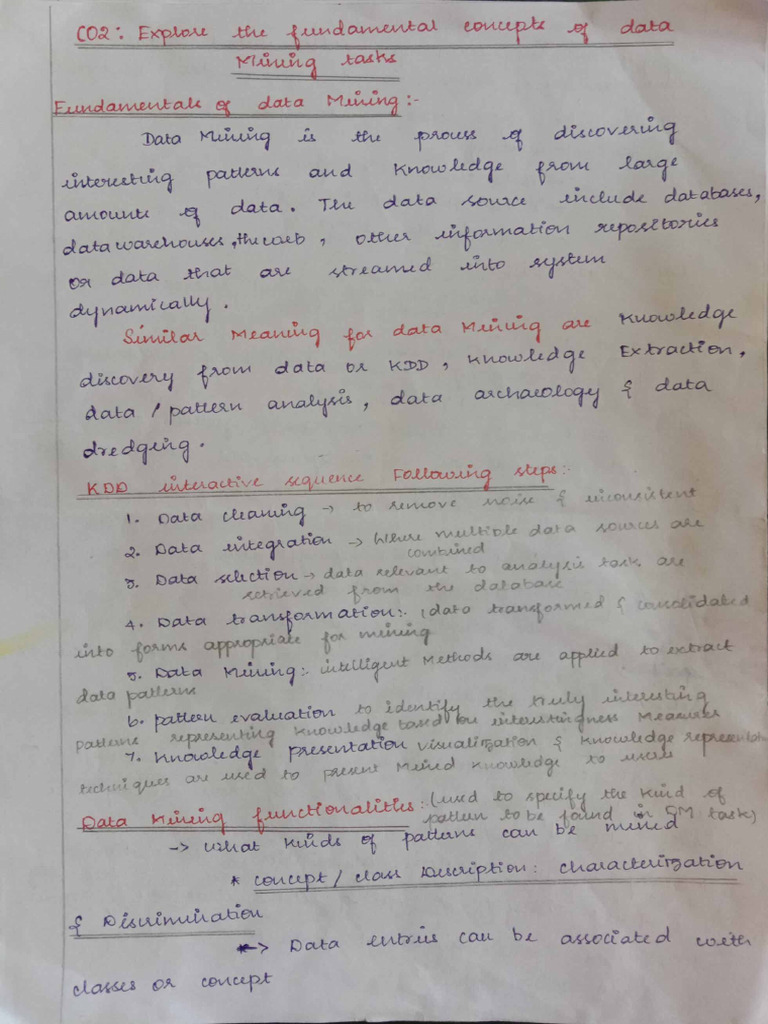 CO2: Explore the fundamental concepts of data
Mining tasks
Fundamentals of data Mining:-
Data Mining is the process of discovering
interesting patterns and knowledge from large
amounts of data. The data source include databases,
datawarehouses, the web, other information repositories
or data that are streamed into system
dynamically.
Similar Meaning for data Mining are Knowledge
discovery from data or KDD, Knowledge Extraction,
data / pattern analysis, data archaeology & data
dredging.
KDD interactive sequence Following steps:-
1. Data cleaning → to remove noise & inconsistent
2. Data integration → Where multiple data sources are
combined
3. Data selection → data relevant to analysis task are
retrieved from the database
4. Data transformation:- data transformed & consolidated
into forms appropriate for mining
5. Data Mining:- intelligent Methods are applied to extract
data patterns
6. pattern evaluation to identify the truly interesting
patterns representing knowledge based on interestingness Measures
7. Knowledge presentation visualization & knowledge representation
techniques are used to present Mined knowledge to users
Data Mining functionalities: (used to specify the kind of
pattern to be found in DM task)
→ What kinds of patterns can be mined
* concept / class Description: characterization
& Discrimination
→ Data entries can be associated with
classes or concept